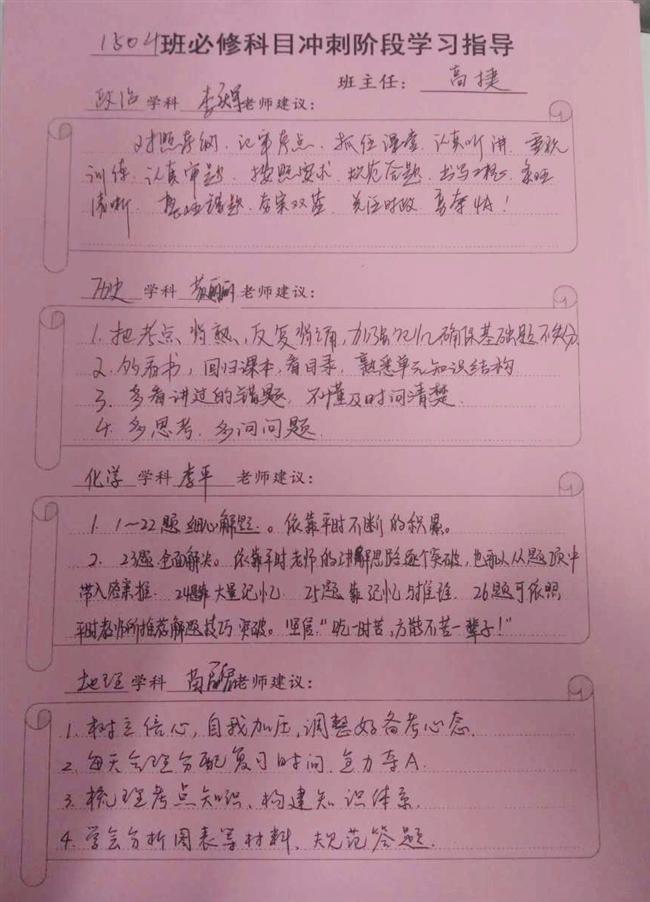 1504班必修科目冲刺阶段学习指导
班主任：高捷
政治学科 老师建议：
对照导纲、记牢考点、抓住课堂、认真听讲、重视
训练、认真审题、按照要求、规范答题、书写工整、条理
清晰、整理错题、答案双基、关注时政、勇夺4A！
历史 学科 老师建议：
1. 把考点背熟，反复背诵，加强记忆确保基础题不失分
2. 多看书，回归课本，看目录，熟悉单元知识结构
3. 多看讲过的错题，不懂及时问清楚.
4. 多思考，多问问题.
化学 学科 李平 老师建议：
1. 1~22题细心解题。依靠平时不断的积累。
2. 23题全面解决。依靠平时老师的讲解思路逐个突破，也可以从题顶中
带入答案推. 24题靠大量记忆 25题靠记忆与推理. 26题可依照
平时教师所推荐解题技巧突破。坚信“吃一时苦，方能不苦一辈子！”
地理学科 老师建议：
1. 树立信心，自我加压，调整好备考心态.
2. 每天合理分配复习时间，全力夺A.
3. 梳理考点知识、构建知识体系.
4. 学会分析图表等材料、规范答题.